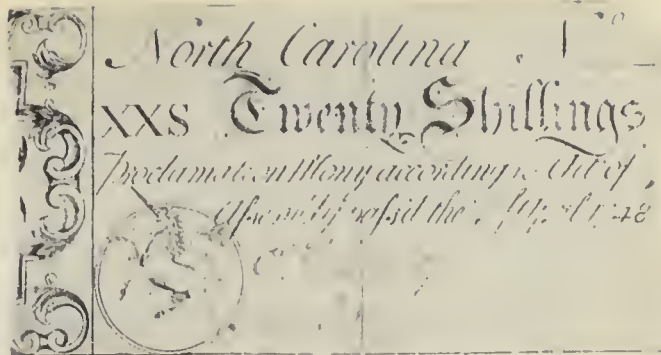 North Carolina. No
XXS Twenty Shillings
Proclamation Mony according to Act of
Assembly passd the April 1748